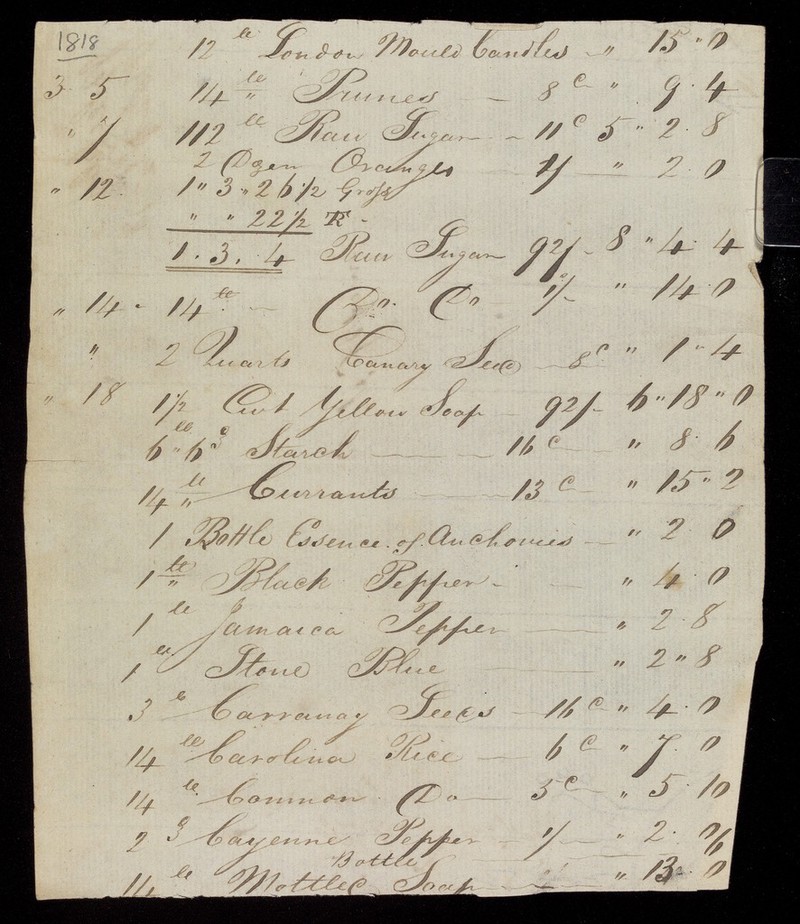 1818
12 lb London Mould Candles — " 15 " 0
3 5 14 lb " Prunes — 8d " 9 . 4
" 7 112 lb Raw Sugar — 11d 5 " 2 . 8
2 Dozen Oranges — 1/ — " 2 . 0
" 12 . 1 " 3 " 26 1/2 Gross
" " 22 1/2 Tr -
1 . 3 . 4 Raw Sugar 92/- 8 " 4 . 4
" 14 - 14 lb — Do. Do — 1/- " 14 . 0
" 2 Quarts Canary Seed — 8d " 1 " 4
" 18 1 1/2 Cwt Yellow Soap — 92/- 6 " 18 " 0
6 lb " 6 Starch — 16d — " 8 . 6
14 lb " Currants — 13d — " 15 " 2
1 Bottle Essence . of . Anchovies — " 2 0
1 lb " Black Pepper - — " 4 . 0
1 lb Jamaica Pepper — " 2 . 8
1 lb Stone Blue — " 2 " 8
3 lb Carraway Seeds — 16d " 4 . 0
14 lb Carolina Rice — 6d " 7 . 0
14 lb Common Do — 5d — " 5 . 10
2 Cayenne Pepper — 1/ — " 2 .
Bottle
14 lb Mottled Soap — " 13 . 0